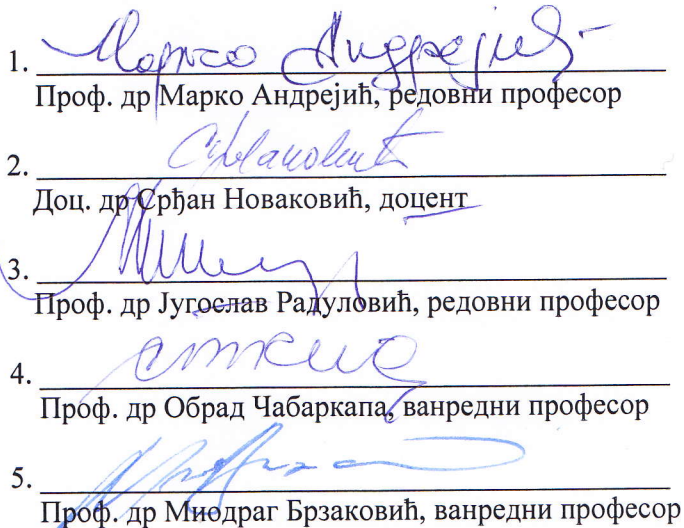 1. Марко Андрејић
Проф. др Марко Андрејић, редовни професор
2.
Доц. др Срђан Новаковић, доцент
3.
Проф. др Југослав Радуловић, редовни професор
4.
Проф. др Обрад Чабаркапа, ванредни професор
5.
Проф. др Миодраг Брзаковић, ванредни професор